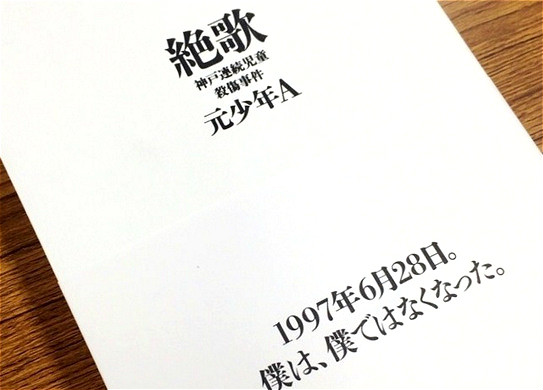 絶歌
神戸連続児童
殺傷事件
元少年A
1997年6月28日。
僕は、僕ではなくなった。